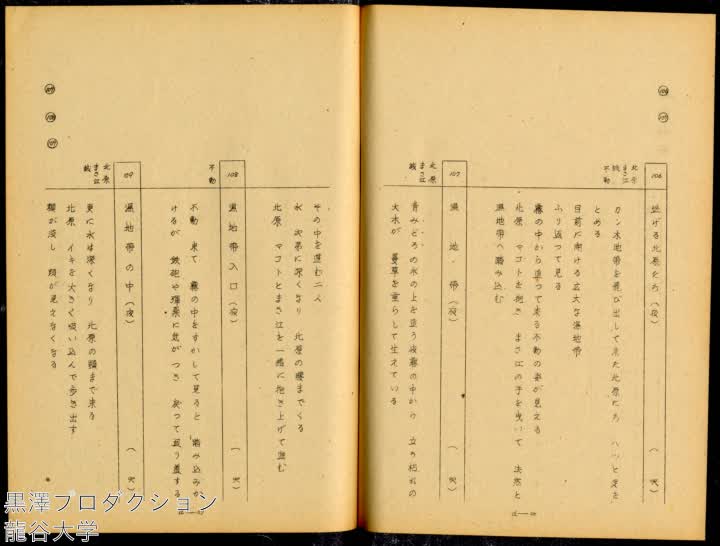 106
107
106
逃げる北原たち(夜)
(火)
北原
まさ江
不動
カン木地帯を飛び出して来た北原たち ハッと足を
とめる
目前に開ける広大な湿地帯
ふり返って見る
霧の中から追って来る不動の姿が見える
北原 マコトを抱き まさ江の手を曳いて 決然と
湿地帯へ踏み込む
107
湿地帯(夜)
北原
まさ江
青みどろの水の上を這う夜霧の中から 立ち枯れの
大木が 蔓草を垂らして生えている
107
108
109
その中を進む二人
水 次第に深くなり 北原の腰までくる
北原 マコトとまさ江を一緒に抱き上げて進む
108
湿地帯入口(夜)
不動
不動 来て 霧の中をすかして見ると 踏み込みか
けるが 鉄砲や弾薬に気がつき 戻って
109
湿地帯の中(夜)
北原
まさ江
更に水は深くなり 北原の頸まで来る
北原 イキを大きく吸い込んで歩き出す
頸が没し 頭が見えなくなる
黒澤プロダクション
龍谷大学